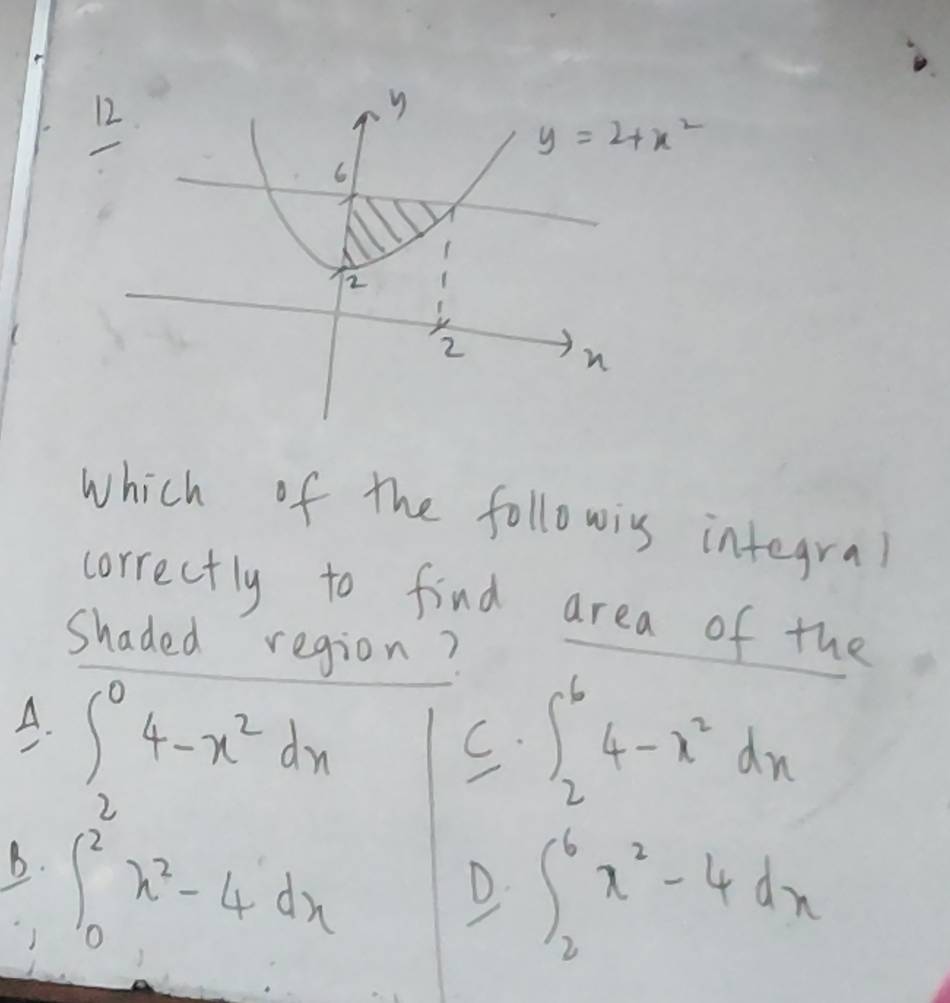 12
y
y = 2+x²
6
2
2
x
Which of the followig integral
correctly to find area of the
Shaded region?
A. ∫₂⁰ 4-x² dx
C. ∫₂⁶ 4-x² dx
B. ∫₀² x²-4 dx
D. ∫₂⁶ x²-4 dx